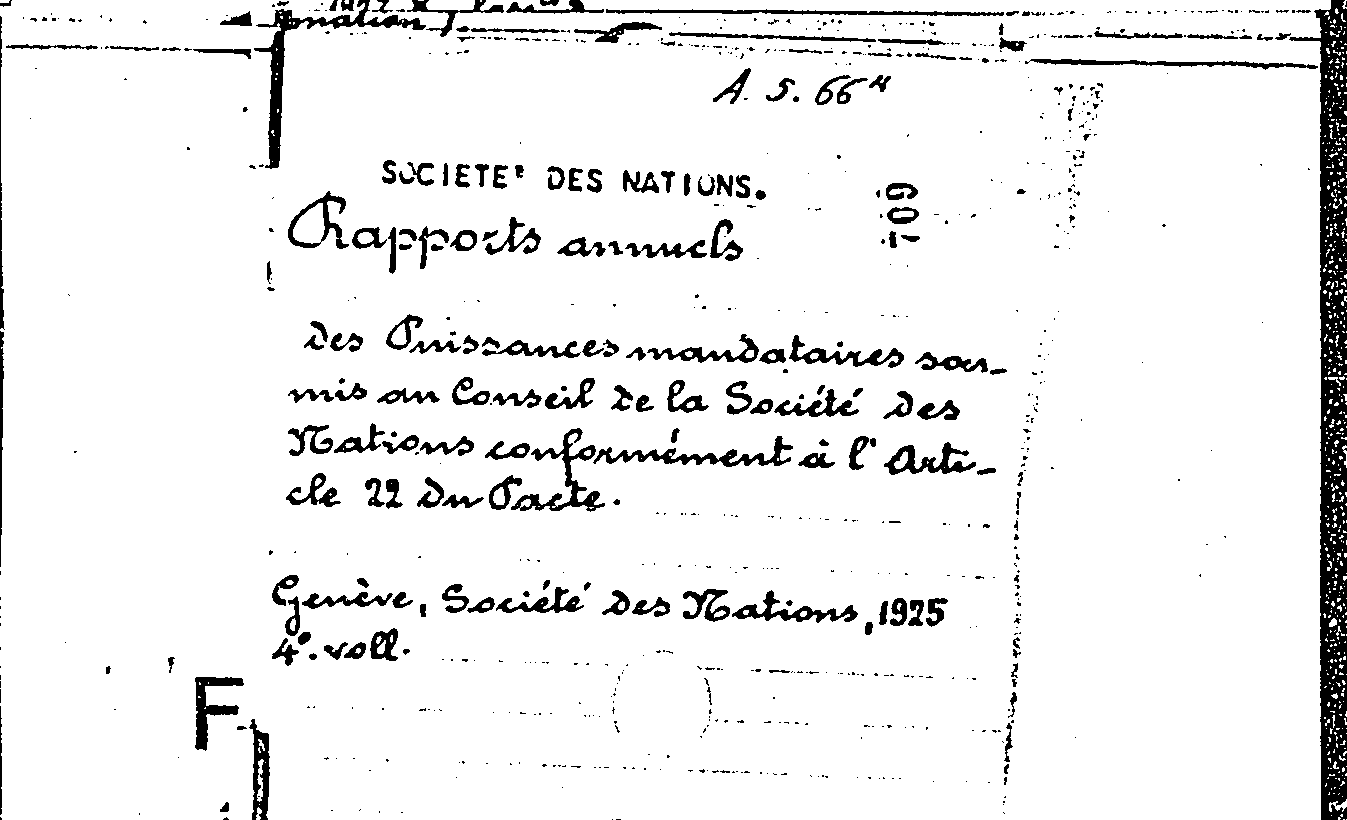 mation).
A. 5. 66"
SOCIETE' DES NATIONS.
109
Rapports annuels
des Puissances mandataires sou-
mis au Conseil de la Société des
Nations conformément à l'Arti-
cle 22 du Pacte.
Genève, Société des Nations, 1925
4°. voll.
F